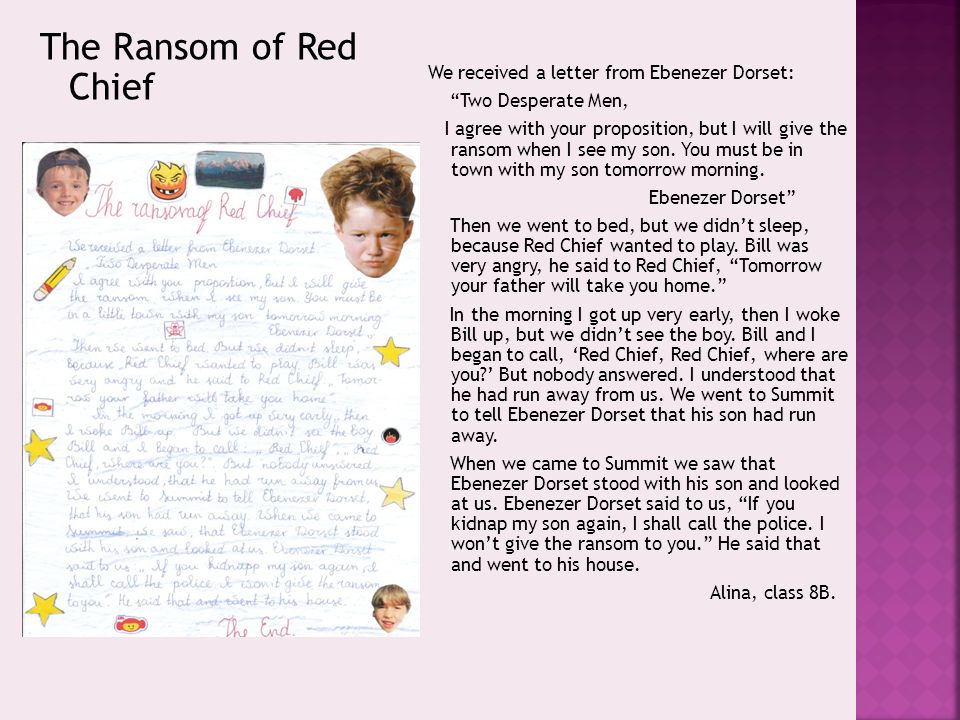 The Ransom of Red
Chief
The ransom of Red Chief
We received a letter from Ebenezer Dorset.
„Two Desperate Men
I agree with you propostion, but I will give
the ransom when I see my son. You must be
in a little town with my son tomorrow morning.
Ebenezer Dorset„
Then we went to bed. But we didn't sleep,
because Red Chief wanted to play. Bill was
very angry and he said to Red Chief: „Tomor-
row your father will take you home".
In the morning I got up very early, then
I woke Bill up. But we didn't see the boy
Bill and I began to call: „Red Chief", „Red
Chief, where are you?". But nobody answered.
I understood, that he had run away from us.
We went to Summit to tell Ebenezer Dorset,
that his son had run away. When we came to
Summit, we saw, that Ebenezer Dorset stood
with his son and looked at us. Ebenezer Dorset
said to us„ If you kidnapp my son again, I
shall call the police. I won't give the ransom
to you". He said that and went to his house.
The End.
We received a letter from Ebenezer Dorset:
“Two Desperate Men,
I agree with your proposition, but I will give the
ransom when I see my son. You must be in
town with my son tomorrow morning.
Ebenezer Dorset”
Then we went to bed, but we didn’t sleep,
because Red Chief wanted to play. Bill was
very angry, he said to Red Chief, “Tomorrow
your father will take you home.”
In the morning I got up very early, then I woke
Bill up, but we didn’t see the boy. Bill and I
began to call, ‘Red Chief, Red Chief, where are
you?’ But nobody answered. I understood that
he had run away from us. We went to Summit
to tell Ebenezer Dorset that his son had run
away.
When we came to Summit we saw that
Ebenezer Dorset stood with his son and looked
at us. Ebenezer Dorset said to us, “If you
kidnap my son again, I shall call the police. I
won’t give the ransom to you.” He said that
and went to his house.
Alina, class 8B.